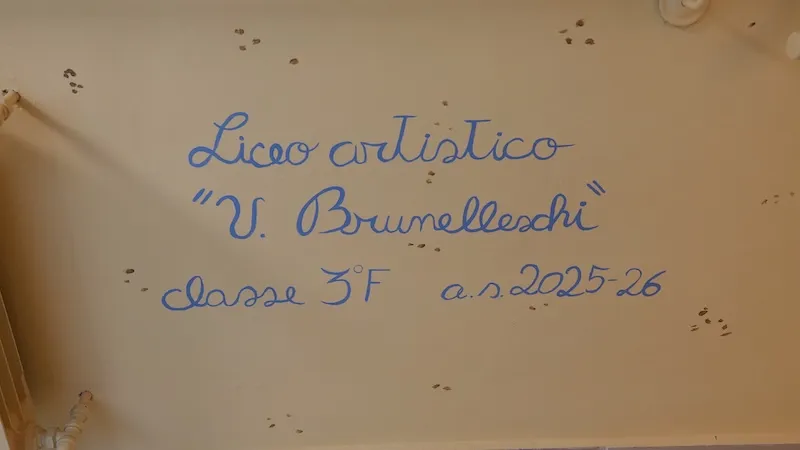 Liceo artistico
"V. Brunelleschi"
classe 3°F a.s. 2025-26